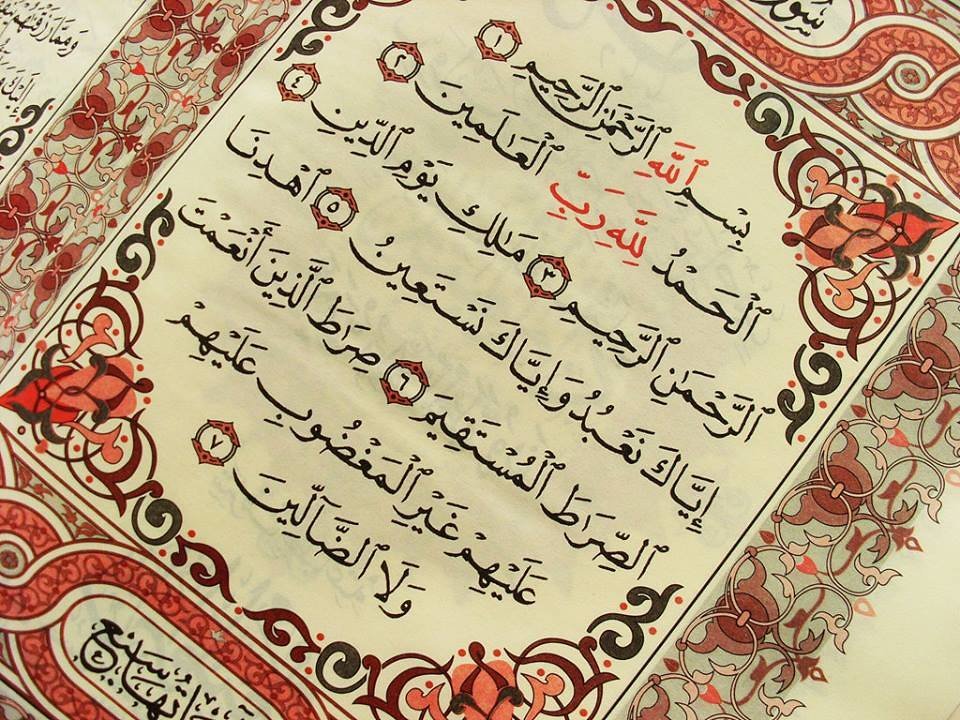 سُورَة
بِسْمِ ٱللَّهِ ٱلرَّحْمَٰنِ ٱلرَّحِيمِ ١
ٱلْحَمْدُ لِلَّهِ رَبِّ ٱلْعَالَمِينَ ٢
ٱلرَّحْمَٰنِ ٱلرَّحِيمِ ٣ مَالِكِ يَوْمِ ٱلدِّينِ ٤
إِيَّاكَ نَعْبُدُ وَإِيَّاكَ نَسْتَعِينُ ٥ ٱهْدِنَا
ٱلصِّرَاطَ ٱلْمُسْتَقِيمَ ٦ صِرَاطَ ٱلَّذِينَ أَنْعَمْتَ
عَلَيْهِمْ غَيْرِ ٱلْمَغْضُوبِ عَلَيْهِمْ
وَلَا ٱلضَّآلِّينَ ٧
سَبْع